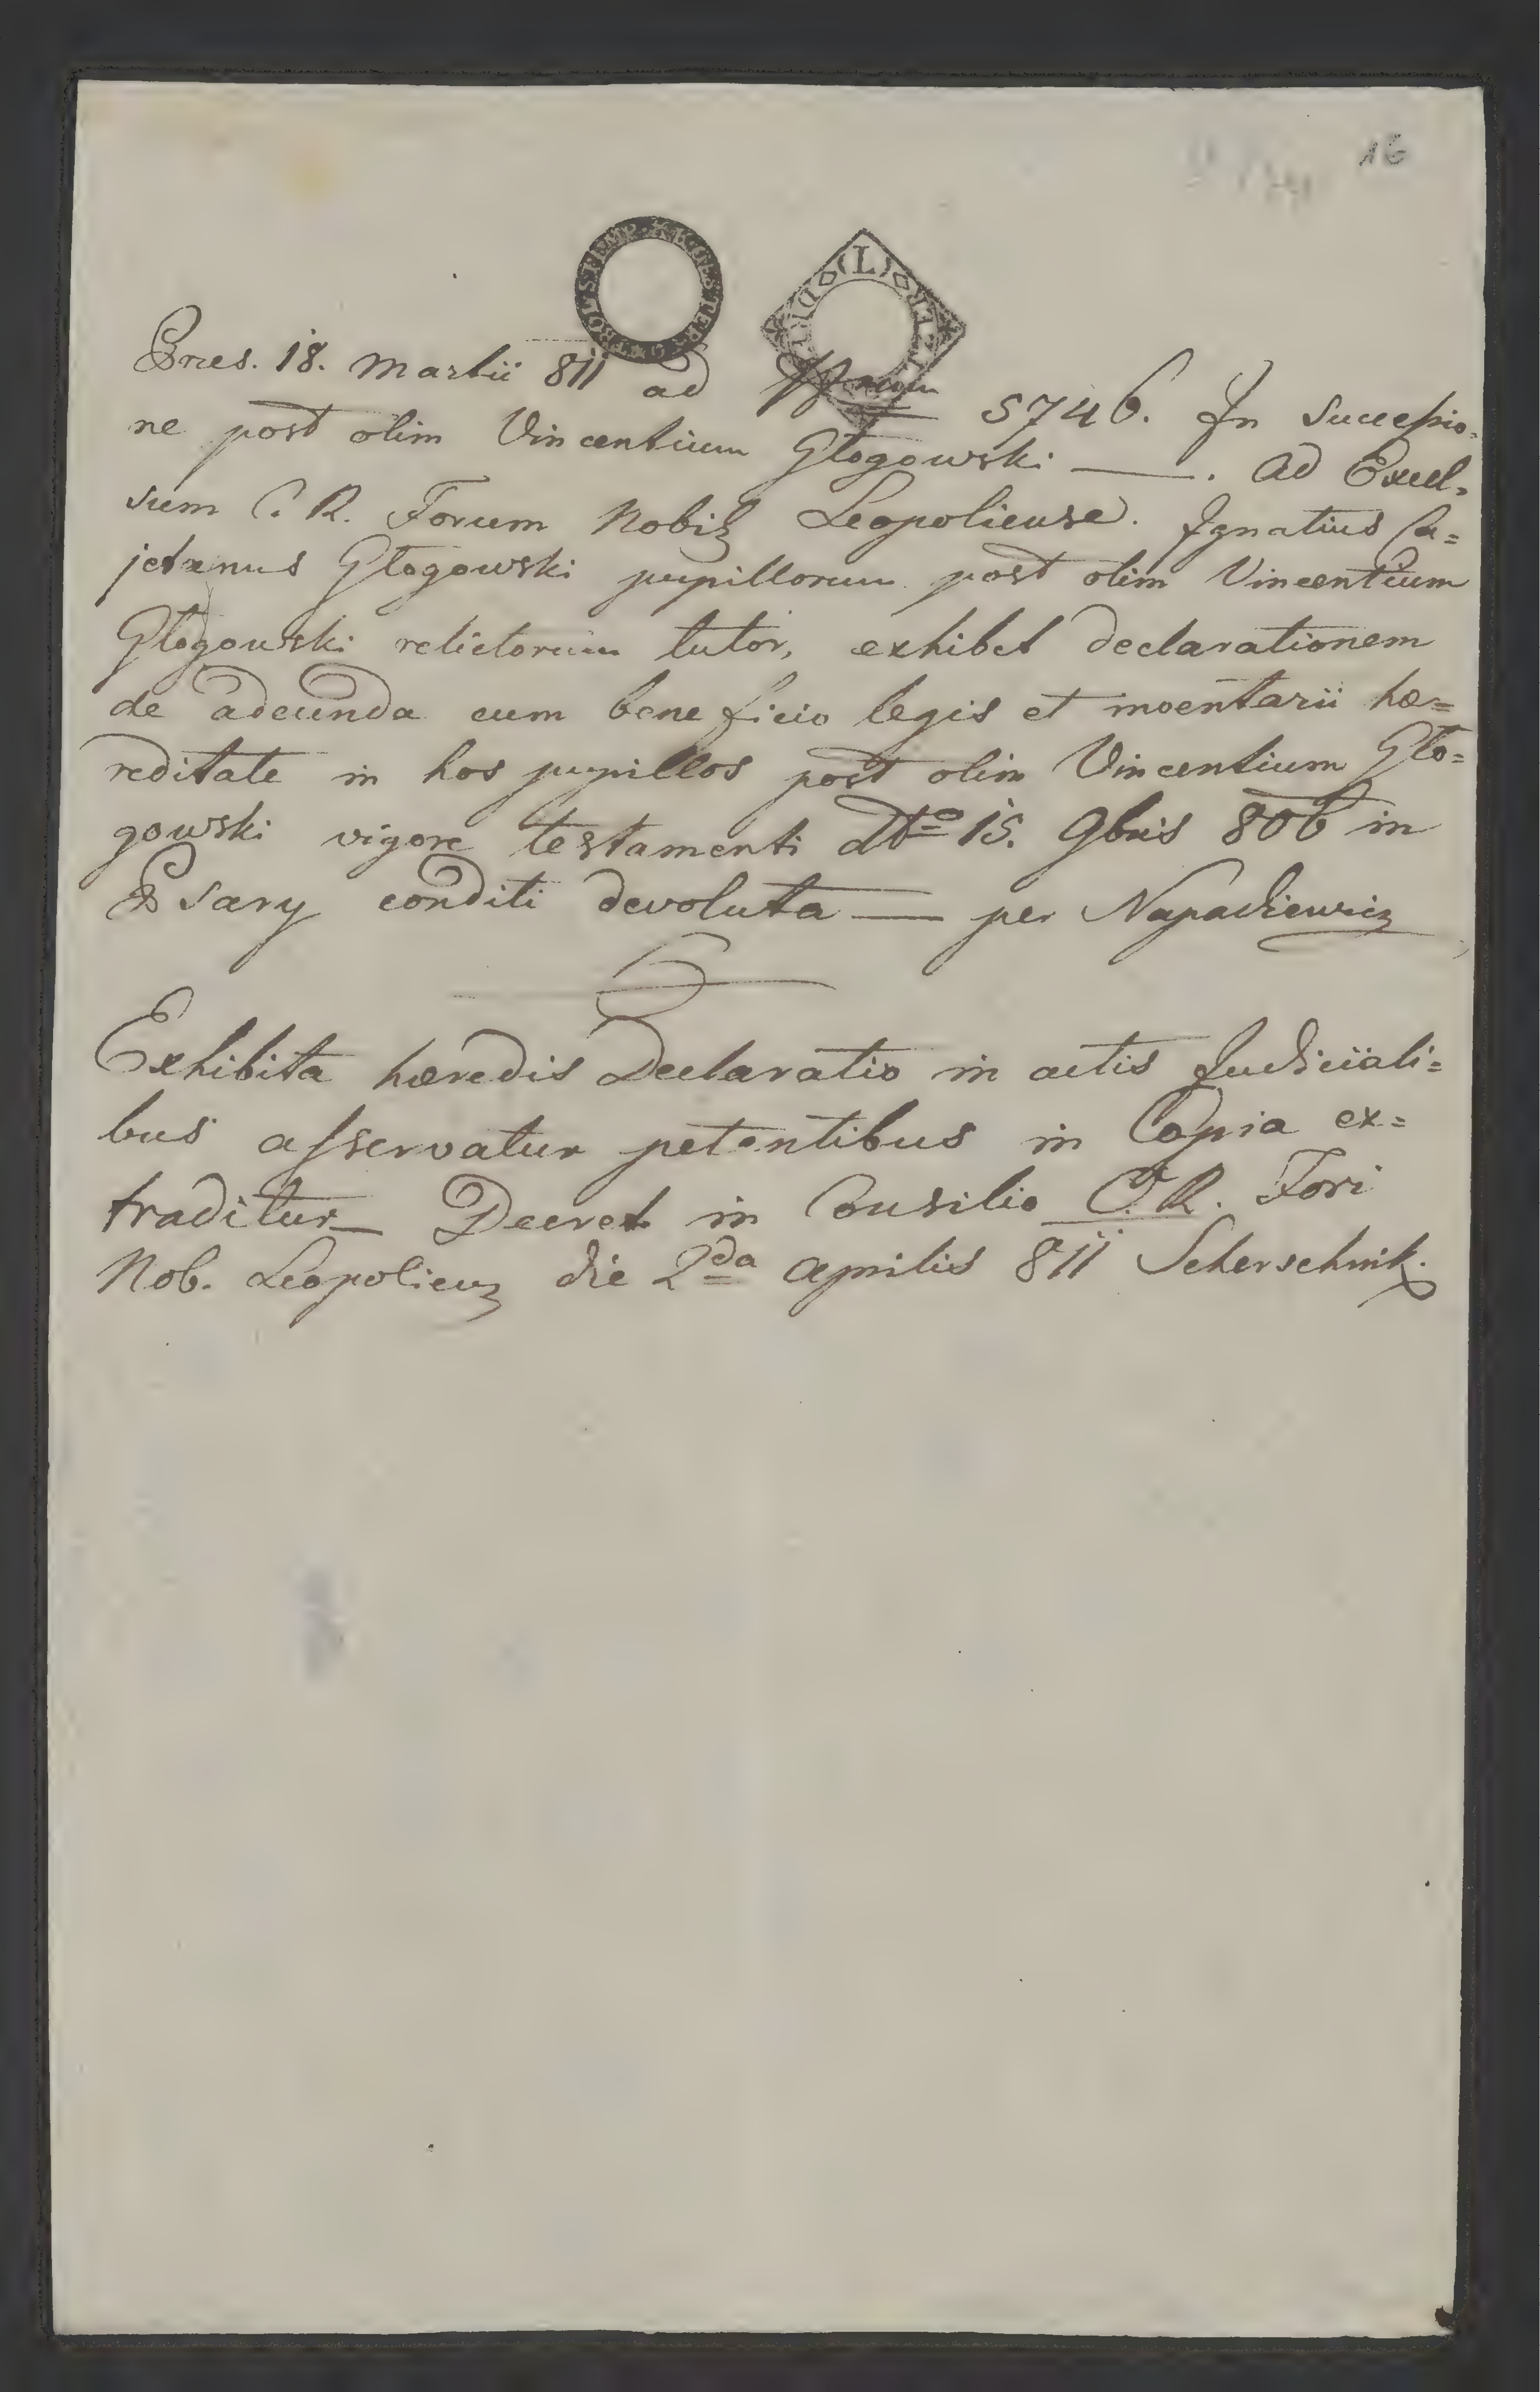 16
K.K. OESTERR. CONTROLSTEMP.
(L)
Præs. 18. Martii 811 ad Nrum 5746. In Successio-
ne post olim Vincentium Głogowski —. Ad Excel-
sum C. R. Forum Nobil Leopoliense. Ignatius Ca=
jetanus Głogowski pupillorum post olim Vincentium
Głogowski relictorum tutor, exhibet declarationem
de adeunda cum beneficio legis et inventarii hæ=
reditate in hos pupillos post olim Vincentium Gło=
gowski vigore testamenti dto 15. 9bris 806 in
Psary conditi devoluta — per Napadiewicz
Exhibita hæredis Declaratio in actis Judiciali=
bus asservatur petentibus in Copia ex=
traditur — Decret in Consilio C. R. Fori
Nob. Leopolien die 2da Aprilis 811 Scherschnik.